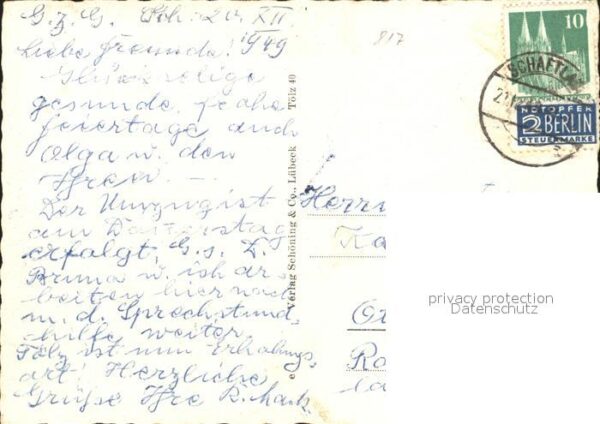 G. z. G. Sch. 20. XII
Liebe Freunde! 1949
Glückselige
gesunde, frohe
Feiertage auch
Olga u. den
Ihren —
Der Umzug ist
am Donnerstag
erfolgt, G. s. D.
u. ich ar-
beiten hier noch
m. d. Sprechstund-
hilfe weiter.
Tölz ist nun Erholungs-
ort! Herzliche
Grüße Ihre R.
817
Verlag Schöning & Co., Lübeck
Tölz 40
10
SCHAFTLA
NOTOPFER
2 BERLIN
STEUERMARKE
Herrn
Ka
Ro
privacy protection
Datenschutz